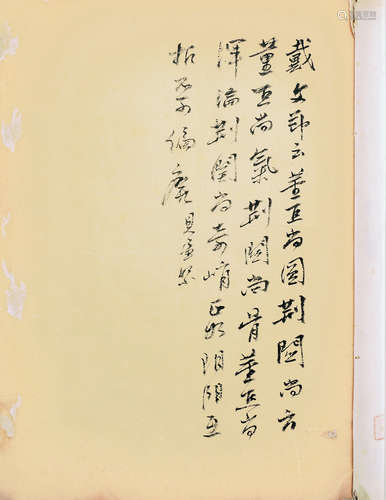 戴文節云董巨尚圆荆關尚方
董巨尚氣荆關尚骨董巨尚
渾淪荆關尚奇峭正如陰陽互
根不可偏廢